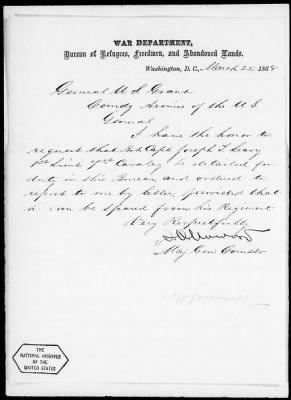 WAR DEPARTMENT,
Bureau of Refugees, Freedmen, and Abandoned Lands.
Washington, D. C., March 25 1868
General U S Grant
Comdg Armies of the U S
General
I have the honor to
request that Bvt Capt Joseph T. Leary
1st Lieut Cavalry be detailed for
duty in this Bureau and ordered to
report to me by letter, provided that
he can be spared from his Regiment
Very Respectfully
O O Howard
Maj Gen Comssr
THE
NATIONAL ARCHIVES
OF THE
UNITED STATES